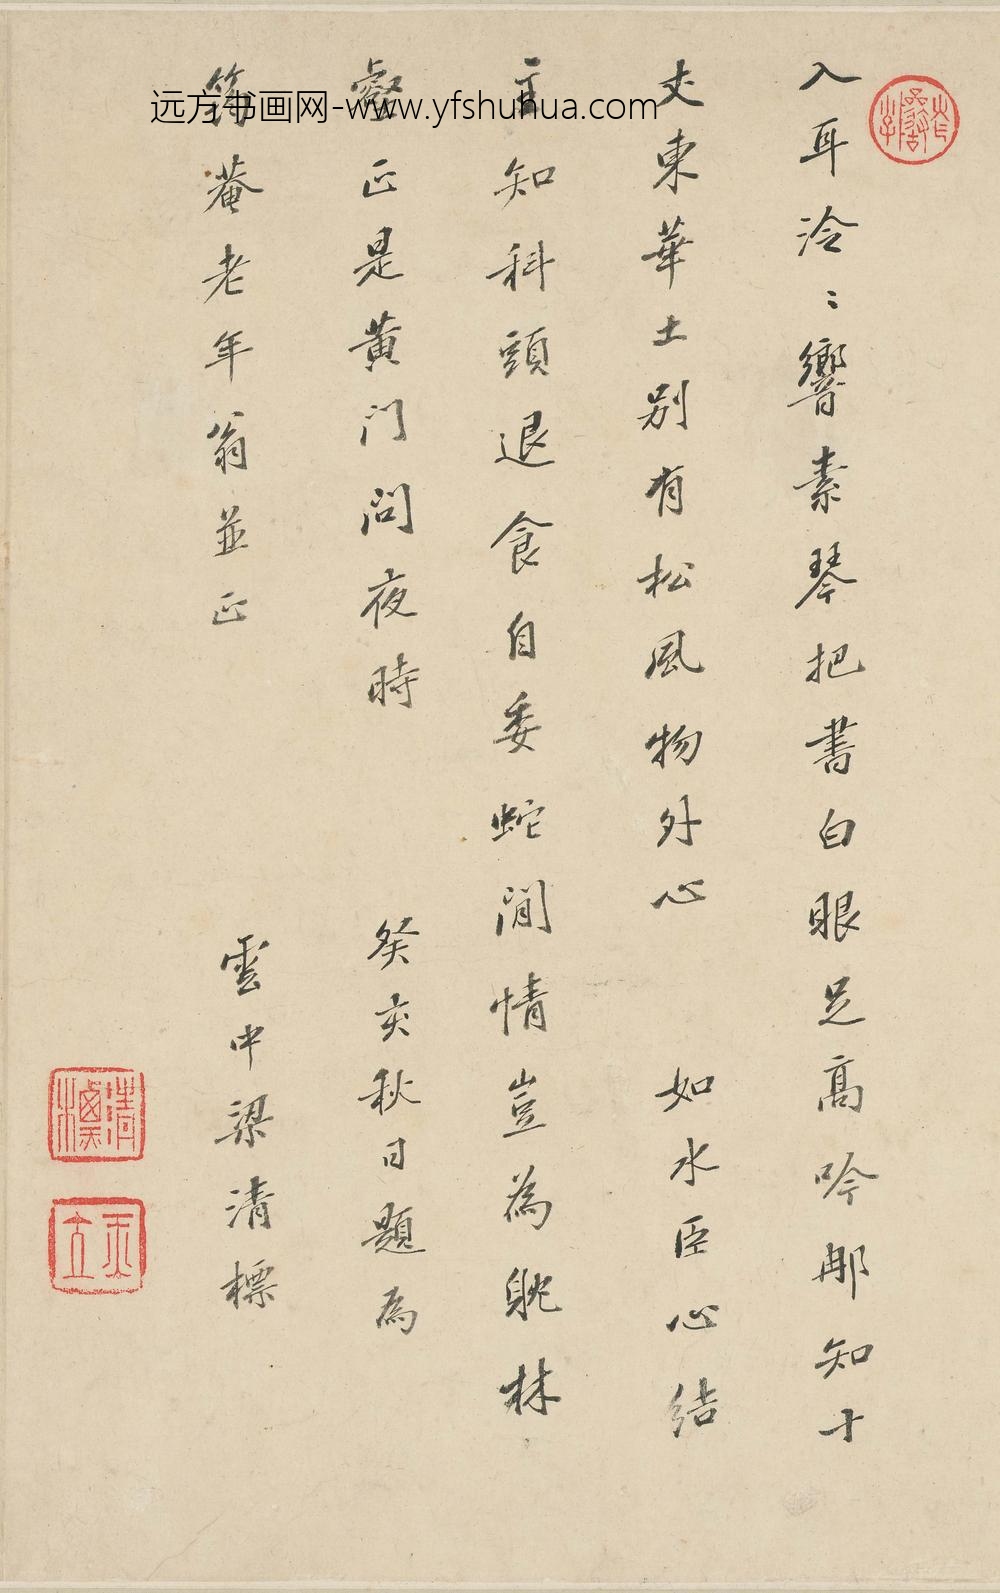 入耳泠〻響素琴把書白眼足高吟那知十
丈東華土別有松風物外心 如水臣心結
主知科頭退食自委蛇閒情豈為躭林
壑正是黃门問夜時 癸亥秋日題為
菴老年翁並正 雲中梁清標
远方书画网-www.yfshuhua.com
清標